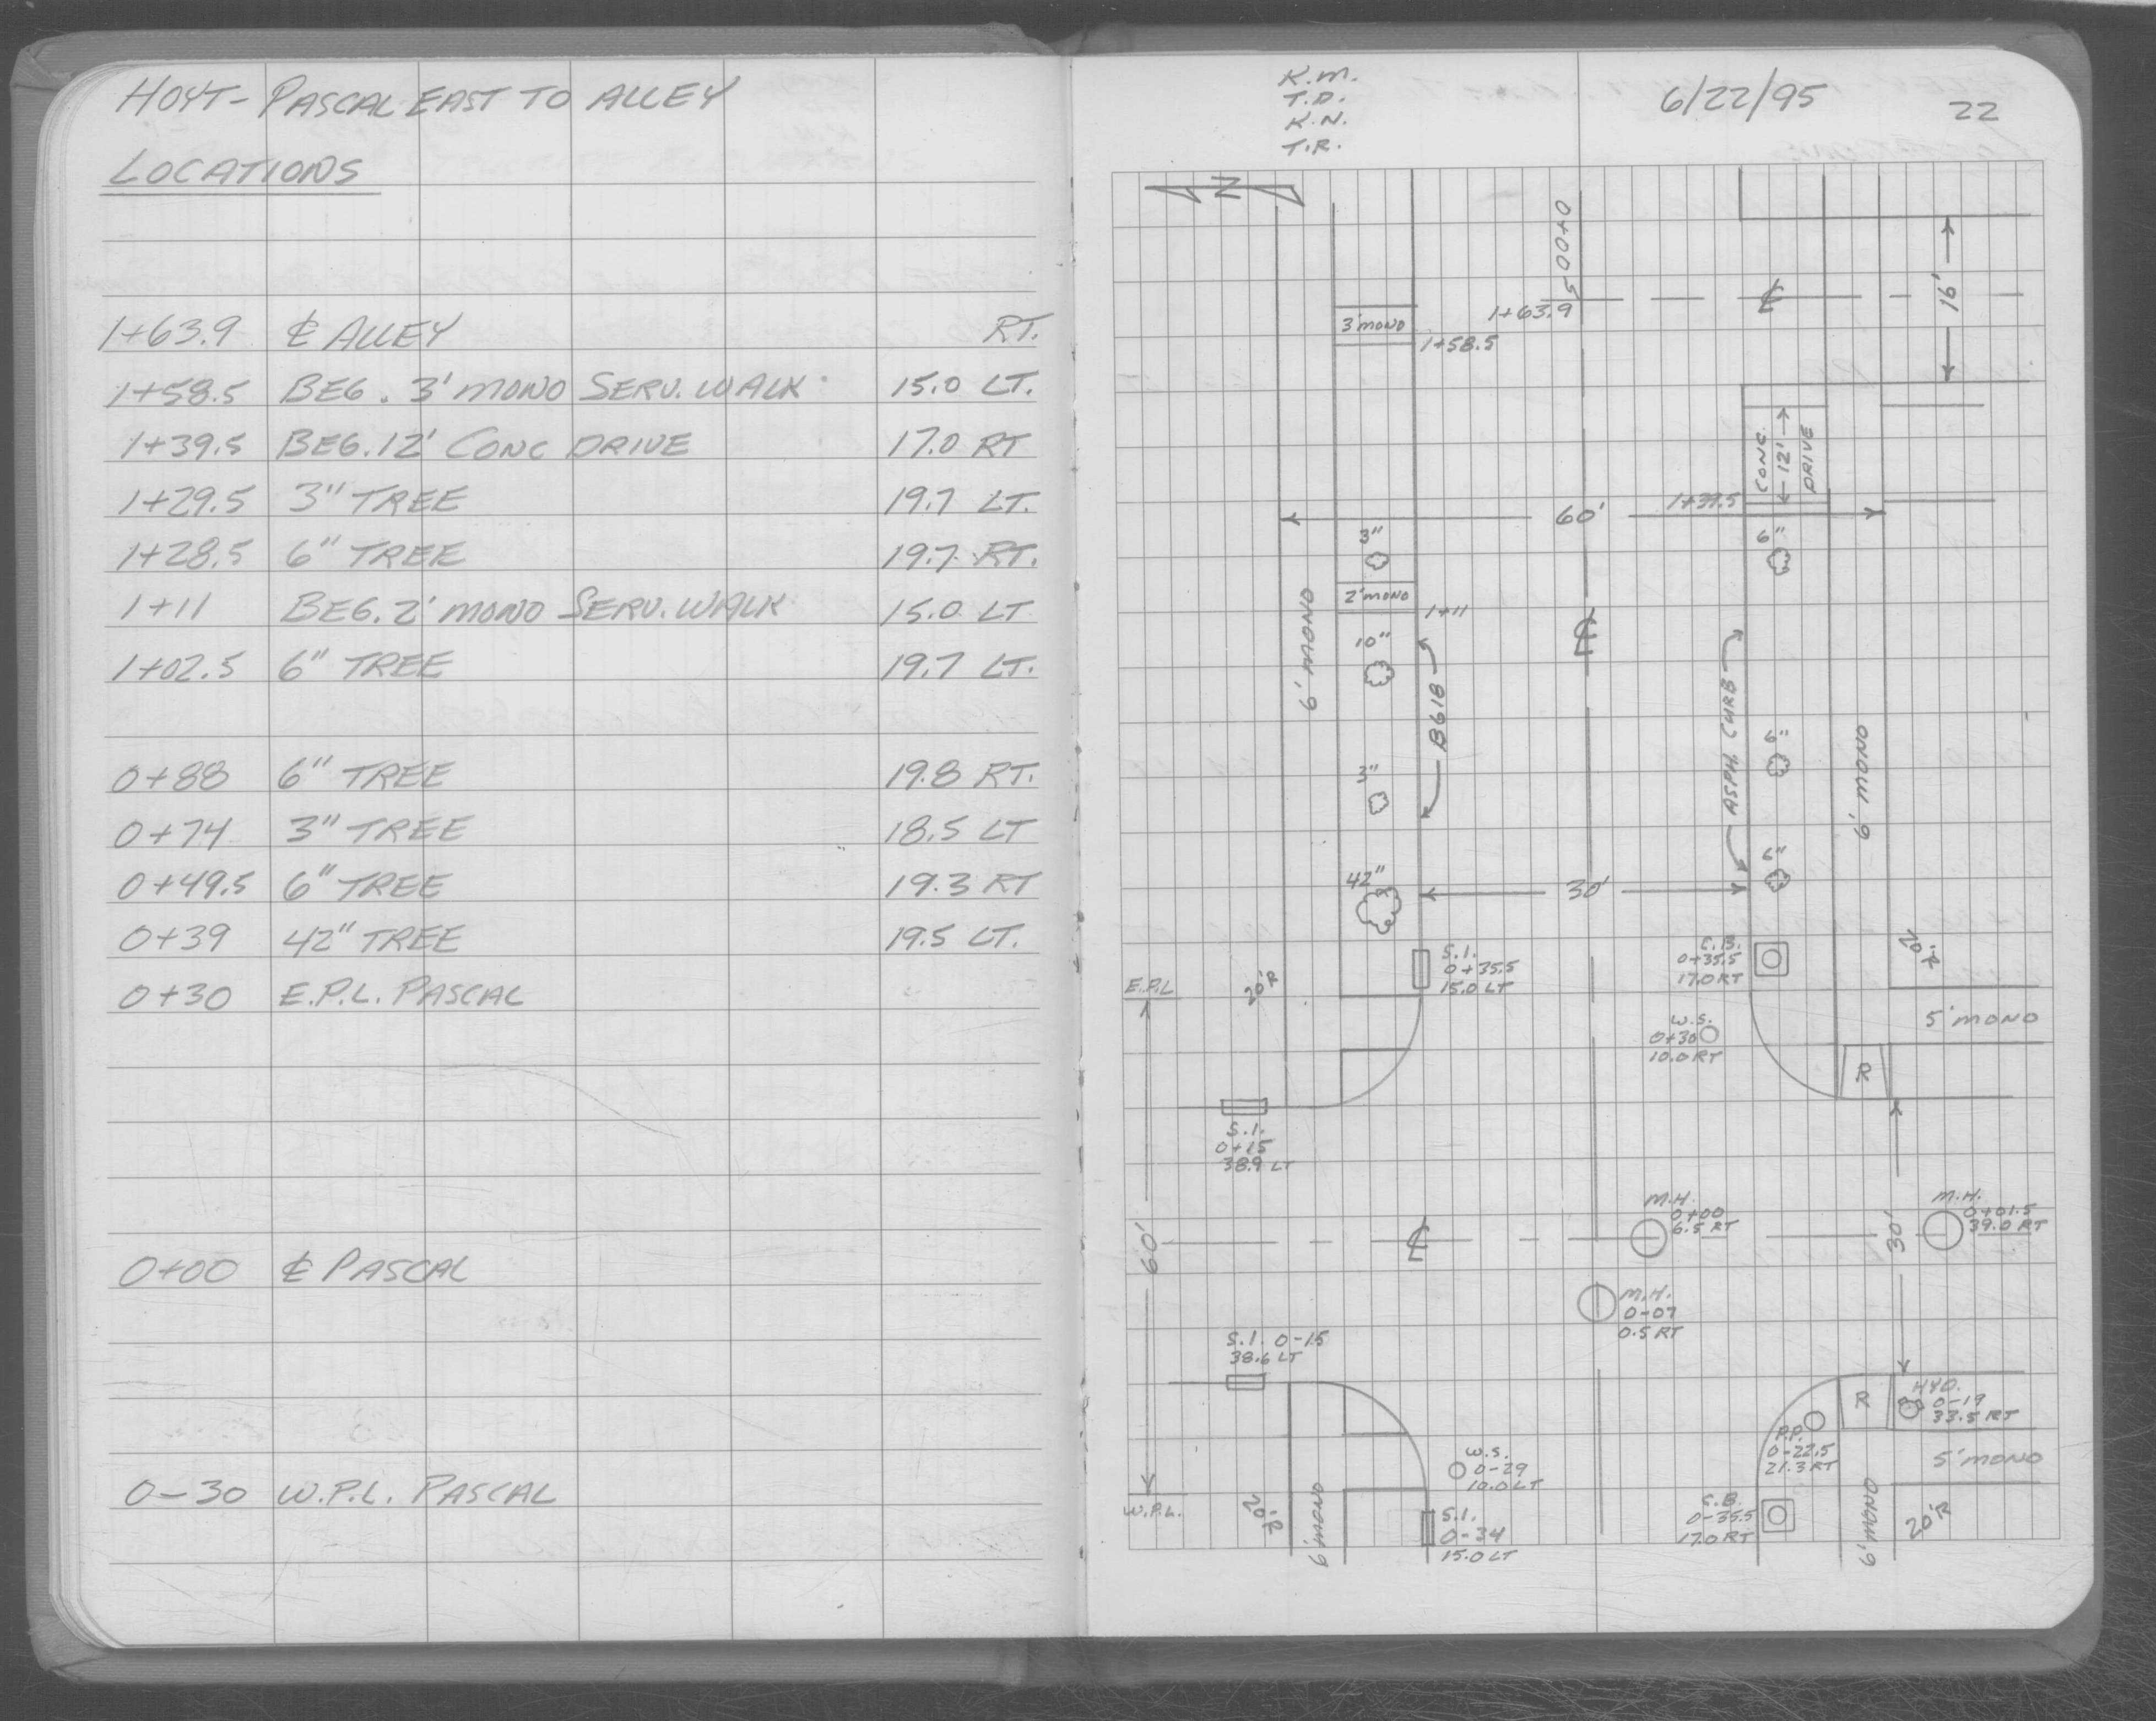 HOYT - PASCAL EAST TO ALLEY
LOCATIONS
1+63.9 ℄ ALLEY RT.
1+58.5 BEG. 3' MONO SERV. WALK 15.0 LT.
1+39.5 BEG. 12' CONC DRIVE 17.0 RT
1+29.5 3" TREE 19.7 LT.
1+28.5 6" TREE 19.7 RT.
1+11 BEG. 2' MONO SERV. WALK 15.0 LT
1+02.5 6" TREE 19.7 LT.
0+88 6" TREE 19.8 RT.
0+74 3" TREE 18.5 LT
0+49.5 6" TREE 19.3 RT
0+39 42" TREE 19.5 LT.
0+30 E.P.L. PASCAL
0+00 ℄ PASCAL
0-30 W.P.L. PASCAL
K.M.
T.D.
K.N.
T.R.
6/22/95
22
N
0+00
16'
℄
1+63.9
3' MONO
1+58.5
CONC.
12'
DRIVE
1+39.5
60'
3"
6"
2' MONO
1+11
6' MONO
10"
℄
B618
ASPH CURB
6"
6' MONO
3"
6"
42"
30'
S.I.
0+35.5
15.0 LT
C.B.
0+35.5
17.0 RT
20'R
20'R
E.P.L
W.S.
0+30
10.0 RT
5' MONO
R
S.I.
0+15
38.9 LT
60'
℄
M.H.
0+00
6.5 RT
30'
M.H.
0+01.5
39.0 RT
M.H.
0-07
0.5 RT
S.I. 0-15
38.6 LT
R
HYD.
0-19
33.5 RT
P.P.
0-22.5
21.3 RT
W.S.
0-29
10.0 LT
5' MONO
W.P.L.
20'R
6' MONO
S.I.
0-34
15.0 LT
C.B.
0-35.5
17.0 RT
6' MONO
20'R